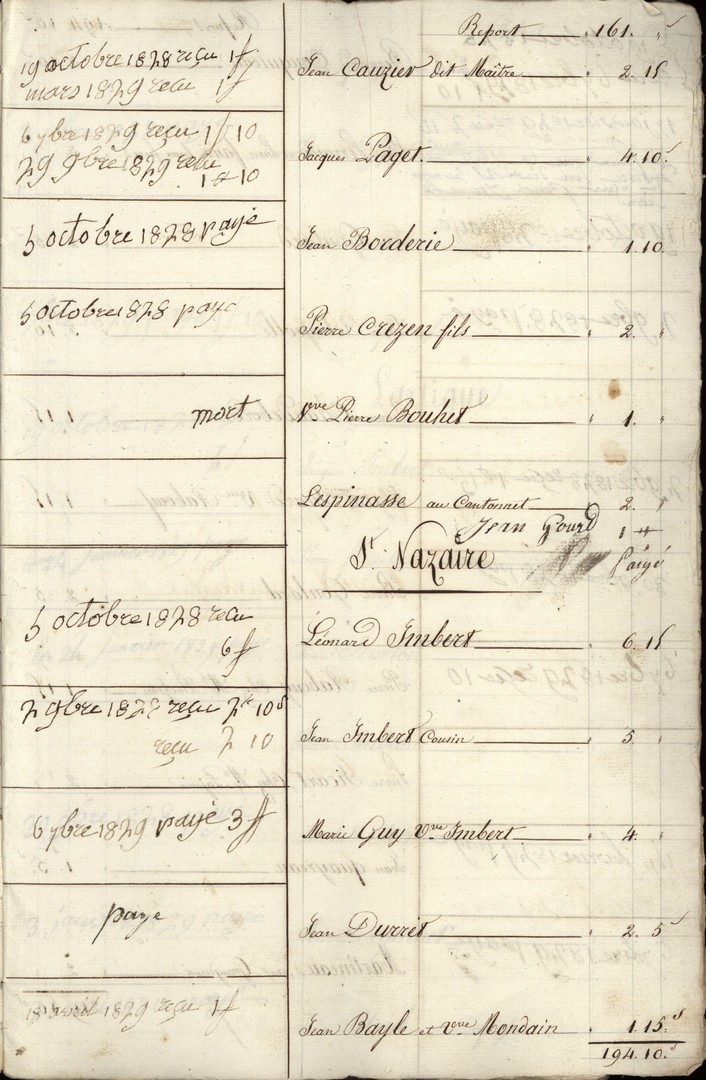 Report 161. "
19 octobre 1828 reçu 1 ff
mars 1829 reçu 1 ff
Jean Cauzier dit Maître " 2. 15
6 ybre 1829 reçu 1 ff 10
29 9bre 1829 reçu
1 ## 10
Jacques Paget. " 4. 10 s
5 octobre 1828 payé
Jean Borderie " 1. 10
5 octobre 1828 payé
Pierre Crezen fils " 2. "
mort
Vve Pierre Bouhet " 1. "
Lespinasse au Cantonnet 2. "
Jean Gourd 1 ##
St. Nazaire payé
5 octobre 1828 reçu
6 ff
Léonard Imbert 6. 15
2 9bre 1828 reçu 2 ## 10 s
reçu 2 10
Jean Imbert Cousin " 5. "
6 ybre 1829 payé 3 ff
Marie Guy Vve Imbert " 4. "
paye
Jean Durret " 2. 5 s
1829 reçu 1 ff
Jean Bayle et Vve Mondain " 1. 15. s
194. 10. s